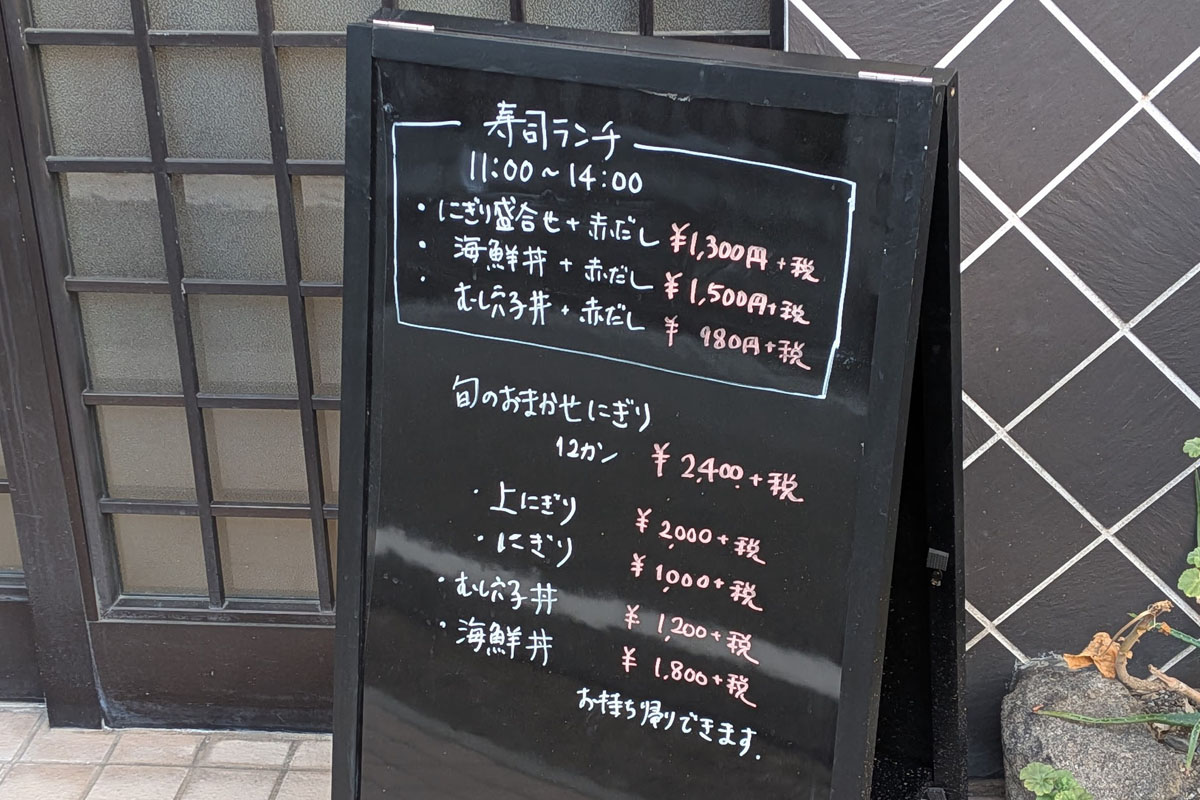 寿司ランチ
11:00～14:00
・にぎり盛合せ+赤だし ¥1,300円+税
・海鮮丼+赤だし ¥1,500円+税
・むし穴子丼+赤だし ¥980円+税
旬のおまかせにぎり
12カン ¥2,400+税
・上にぎり ¥2,000+税
・にぎり ¥1,000+税
・むし穴子丼 ¥1,200+税
・海鮮丼 ¥1,800+税
お持ち帰りできます.